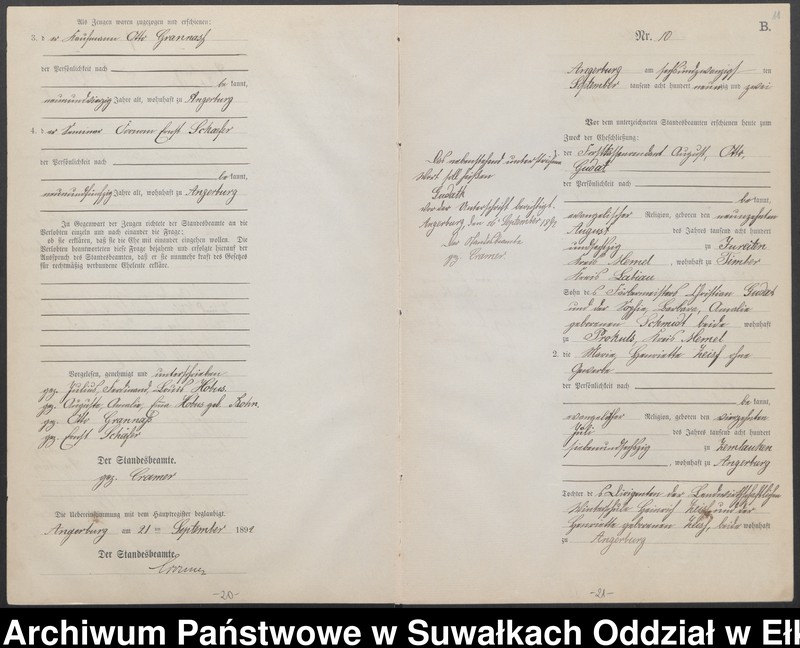 Als Zeugen waren zugezogen und erschienen:
3. der Kaufmann Otto Grannass
der Persönlichkeit nach
be kannt,
neunundvierzig Jahre alt, wohnhaft zu Angerburg
4. der Ernst Schaefer
der Persönlichkeit nach
be kannt,
neunundfünfzig Jahre alt, wohnhaft zu Angerburg
In Gegenwart der Zeugen richtete der Standesbeamte an die
Verlobten einzeln und nach einander die Frage:
ob sie erklären, daß sie die Ehe mit einander eingehen wollen. Die
Verlobten beantworteten diese Frage bejahend und erfolgte hierauf der
Ausspruch des Standesbeamten, daß er sie nunmehr kraft des Gesetzes
für rechtmäßig verbundene Eheleute erkläre.
Vorgelesen, genehmigt und unterschrieben
gez. Julius, Ferdinand, Louis Hobus.
gez. Auguste, Amalie, Hobus geb. Kohn.
gez. Otto Grannass
gez. Ernst Schäfer
Der Standesbeamte.
gez. Cramer
Die Uebereinstimmung mit dem Hauptregister beglaubigt.
Angerburg am 21 ten September 1892
Der Standesbeamte.
Cramer
-20-
B.
Nr. 10
Angerburg am sechsundzwanzigsten
September tausend acht hundert neunzig und zwei
Vor dem unterzeichneten Standesbeamten erschienen heute zum
Zweck der Eheschließung:
1. der Forstkassenrendant August, Otto,
Gudat
der Persönlichkeit nach
be kannt,
evangelischer Religion, geboren den neunzehnten
August des Jahres tausend acht hundert
undsechzig zu
Kreis Memel, wohnhaft zu
Kreis Labiau
Sohn des Färbermeisters Christian Gudat
und der Sophie, Barbara, Amalie
geborenen Schmidt beide wohnhaft
zu Prökuls, Kreis Memel
2. die Maria, Henriette Zeiss ohne
Gewerbe
der Persönlichkeit nach
be kannt,
evangelischer Religion, geboren den vierzehnten
Juli des Jahres tausend acht hundert
siebenundsechzig zu
, wohnhaft zu Angerburg
Tochter des Dirigenten der Landwirthschaftlichen
Winterschule Heinrich Zeiss und der
Henriette geborenen beide wohnhaft
zu Angerburg
Das nebenstehend unterstrichene
Wort soll heißen
Gudath
vor der Unterschrift berichtigt.
Angerburg, den 26 September 1892
Der Standesbeamte
gez. Cramer.
-21-
Archiwum Państwowe w Suwałkach Oddział w Ełk